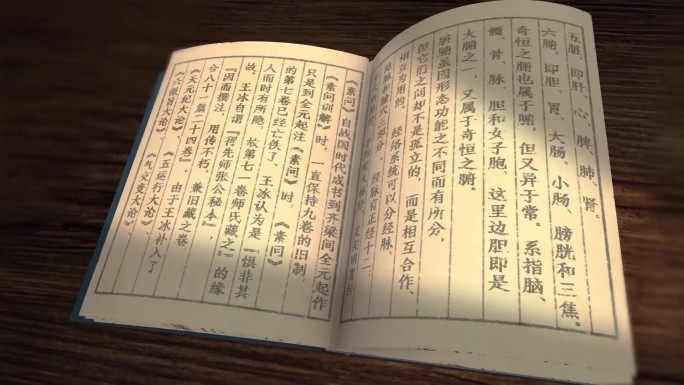 五脏，即肝、心、脾、肺、肾。
六腑，即胆、胃、大肠、小肠、膀胱和三焦。
奇恒之腑也属于腑，但又异于常。系指脑、
髓、骨、脉、胆和女子胞，这里边胆即是
大腑之一，又属于奇恒之腑。
脏腑虽因形态功能之不同而有所分，
但它们之间却不是孤立的，而是相互合作、
相互为用的。经络系统可以分经脉、
经脉有正经十二
《素问》自战国时代成书到齐梁间全元起作
《素问训解》时，一直保持九卷的旧制，
只是到全元起注《素问》时，《素问》
的第七卷已经亡佚了。王冰认为是“惧非其
人而时有所隐，故第七一卷师氏藏之”的缘
故，王冰自谓“得先师张公秘本”，
“因而撰注，用传不朽，兼旧藏之卷，
合八十一篇二十四卷”。由于王冰补入了
《天元纪大论》《五运行大论》、
《六微旨大论》《气交变大论》、